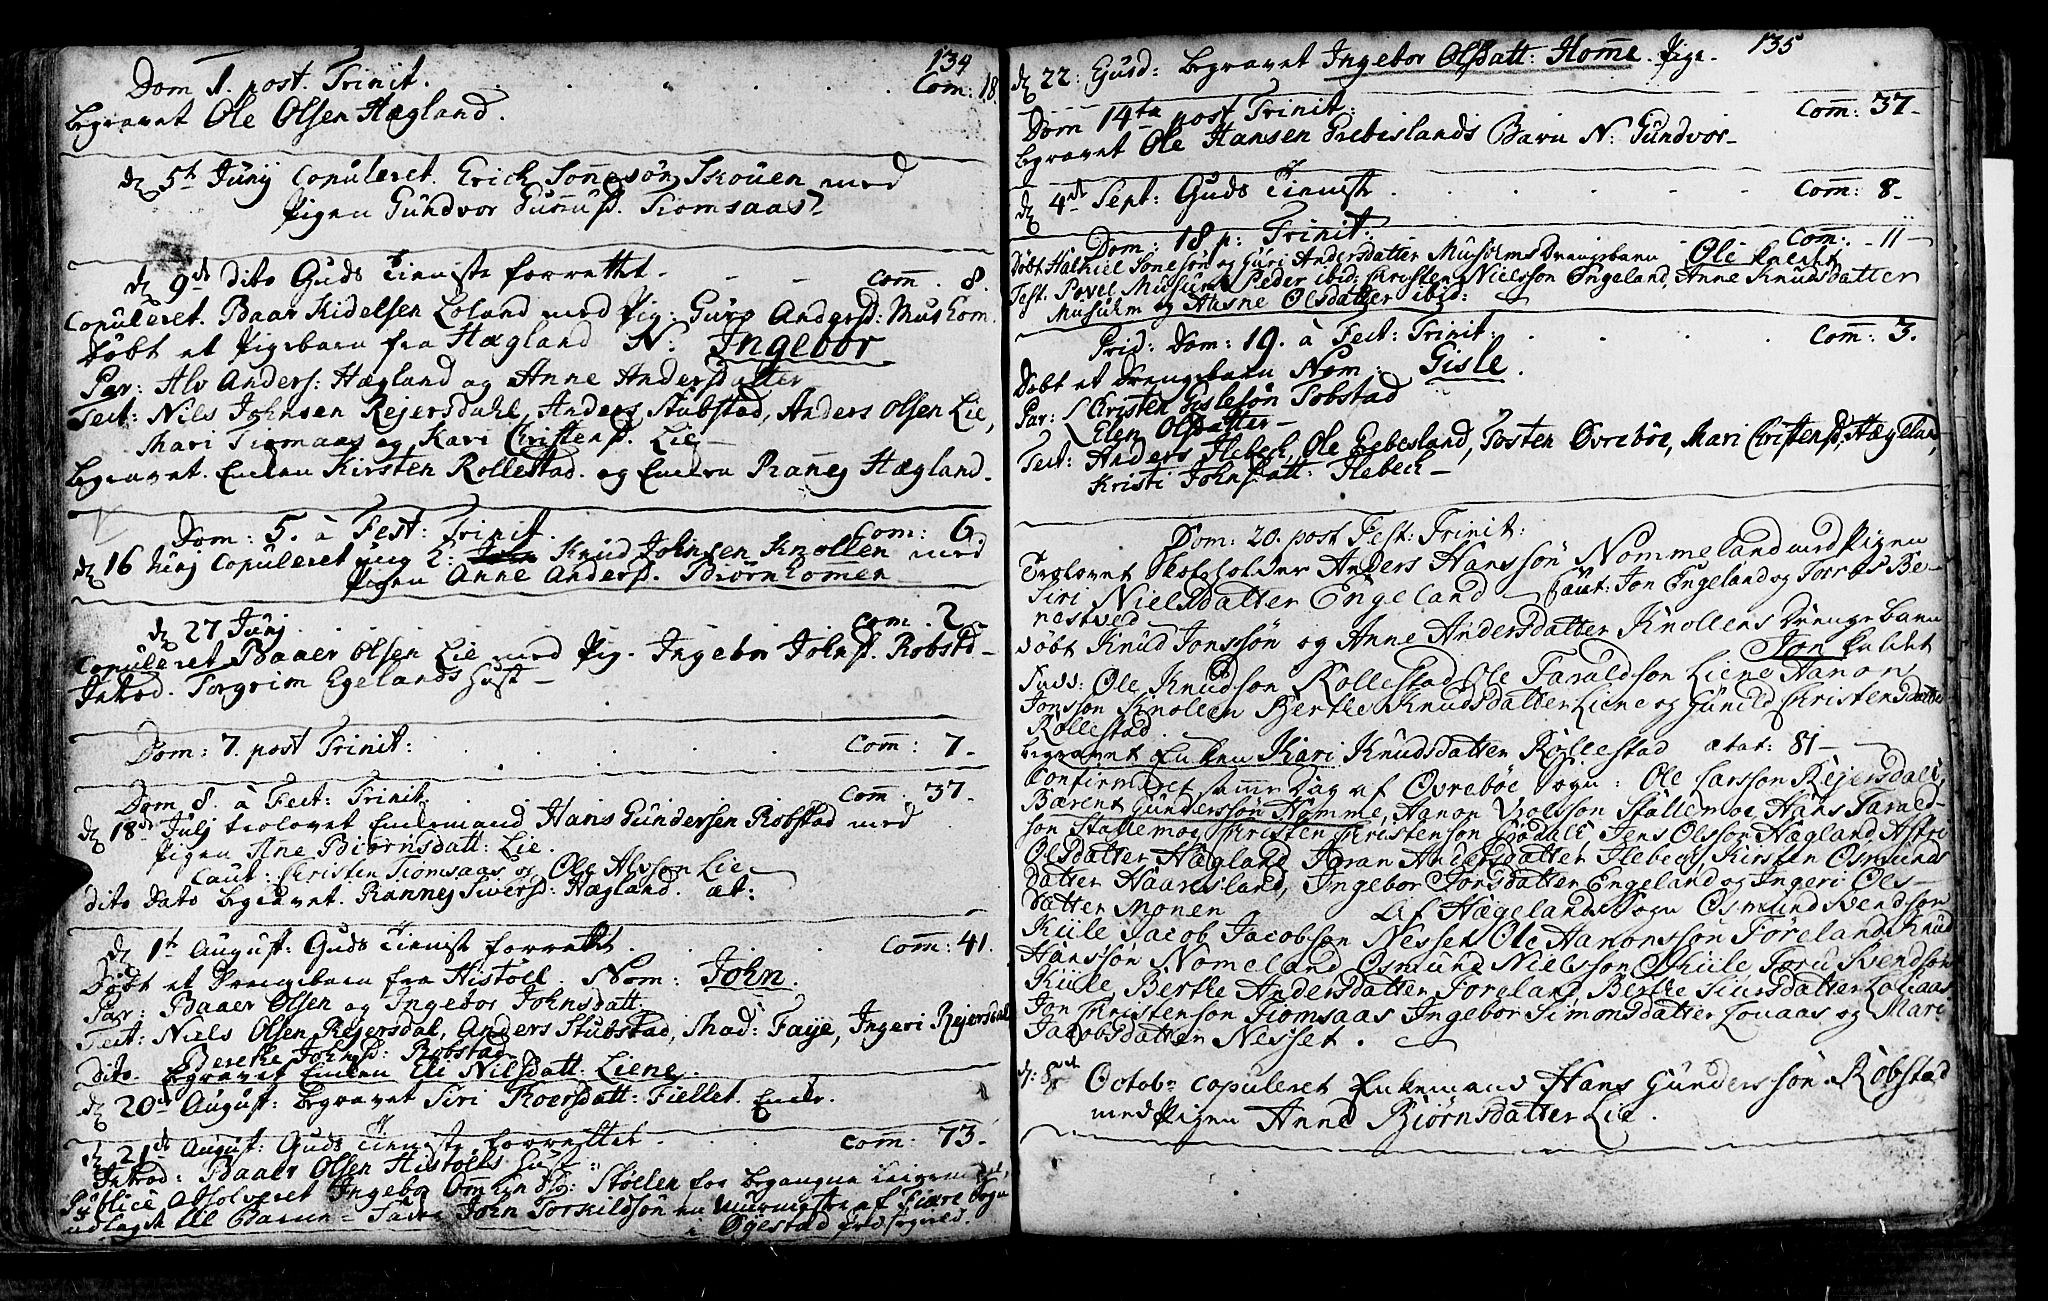 134
Dom 1. post. Trinit. Com: 18.
begravet Ole Olsen Hægland.
d 5t Junij Copuleret. Erich Sonnesön Skouen med
Pigen Gundvor Tiomsaas
d 9de dito Guds Tieniste forrettet. Com. 8.
Copuleret. Baar Kidelsen Loland med Pig: Guro Andersd: Mushom.
Döbt et Pigebarn fra Hægland N: Ingebor
Par: Alv Anders: Hægland og Anne Andersdatter
Test: Nils Johnsen Rejersdahl, Anders Stubstad, Anders Olsen Lie,
Mari Tiomsaas og Kari Christensd. Lie
begravet. Enken Kirsten Rollestad. og Enken Ranej Hægland.
Dom: 5. à Fest: Trinit. Com: 6.
d 16 Junj Copuleret ung K: Knud Johnsen Knollen med
Pigen Anne Andersd. Biörnkomen
d 27 Junj Com. 2
Copuleret Baaer Olsen Lie med Pig. Ingebor Johnsd. Robstd
Introd. Torgrim Egelands Hust
Dom: 7. post Trinit: Com: 7
Dom 8. à Fest: Trinit. Com: 37.
d 18de Julj trolovet Enkemand Hans Gundersen Robstad med
Pigen Ane Biörnsdatt: Lie.
Caut: Christen Tiomsaas og Ole Alfsen Lie
dito Dato begravet. Rannej Siversd: Hægland. æt:
d 1t August: Guds Tieniste forrettet. Com: 41.
Döbt et Drengebarn fra Histöel. Nom: John.
Par: Baaer Olsen og Ingebor Johnsdatt.
Test: Niels Olsen Rejersdal, Anders Stubstad, Faije, Ingeri Rejersdal
Berethe Johnsd: Robstad
dito. begravet Enken Eli Nilsdatt: Liene.
d 20de August: begravet Siri Roersdatt: Fiellet. Enke.
d 21de August: Guds Tieniste forrettet. Com: 73.
Introd: Baaer Olsen Histöels Hust
Publice Absolveret Ingebor Stöelen for begangne Leiermaal,
udlagde til Barne-Fader John Torkildsön en Muurmester af Fiære Sogn
i Öyestad Præstegield.
135
d 22: Gusd: begravet Ingebor Olsdatt: Home. Pige.
Dom 14ta post Trinit: Com: 37
begravet Ole Hansen Giebislands Barn N: Gundvor
d 4de Sept: Guds Tieniste Com: 8
Dom: 18. p: Trinit: Com: 11
Döbt Halvel Sonesön og Guri Andersdatter Musolms Drengebarn Ole kaldt
Test: Povel Musum Peder ibid: Christen Nielsson Engeland, Anne Knudsdatter
Musulm og Aasne Olsdatter ibid:
Prid: Dom: 19. à Fest: Trinit: Com: 3.
Döbt et Drengebarn Nom: Gisle.
Par: Christen Gislesön Tobstad
Elen Olsdatter
Test: Anders Ilebech, Ole Giebesland, Tosten Övreböe, Mari Christensd, Hægeland,
Kristi Johnsdatt: Ilebech
Dom: 20. post Fest: Trinit:
Trolovet Skoleholder Anders Hanssön Nommeland med Pigen
Siri Nielsdatter Engeland Caut: Jon Engeland og Torres Be-
nestved
Döbt Knud Jonssön og Anne Andersdatter Knollens Drengebarn
Jon kaldet
Fadd: Ole Knudson Rollestad Ole Taraldson Liene Hanon
Jonsson Knollen Berthe Knudsdatter Liene og Gunild Christensdatter
Rollestad.
begravet Enken Kari Knudsdatter Rollestad ætat: 81
Confirmeret samme Dag af Övreböe Sogn: Ole Larsson Rejersdal,
Bærent Gunderssön Homme, Hanon Stallemoe Hans Tarald-
son Stallemoe, Christen Christenson Jens Olsson Hægland Astri
Olsdatter Hægland Joran Andersdatter Ilebech, Kirsten Osmunds
datter Haarsland, Ingebor Jonsdatter Engeland og Ingeri Ols-
datter Monen Af Hægelands Sogn Osmund Svendson
Kule Jacob Jacobson Nesset Ole Hanonsson Foreland Knud
Hanssön Nomeland Osmund Nielsson Kule Toru Svendson
Kule Berthe Andersdatter Forgland Berthe Siursdatter Lauaas
Jon Christenson Tiomsaas Ingebor Simonsdatter Louaas og Mari
Jacobsdatter Nesset.
d: 8de Octobr copuleret Enkemand Hans Gunderssön Robstad
med Pigen Anne Biörnsdatter Lie.